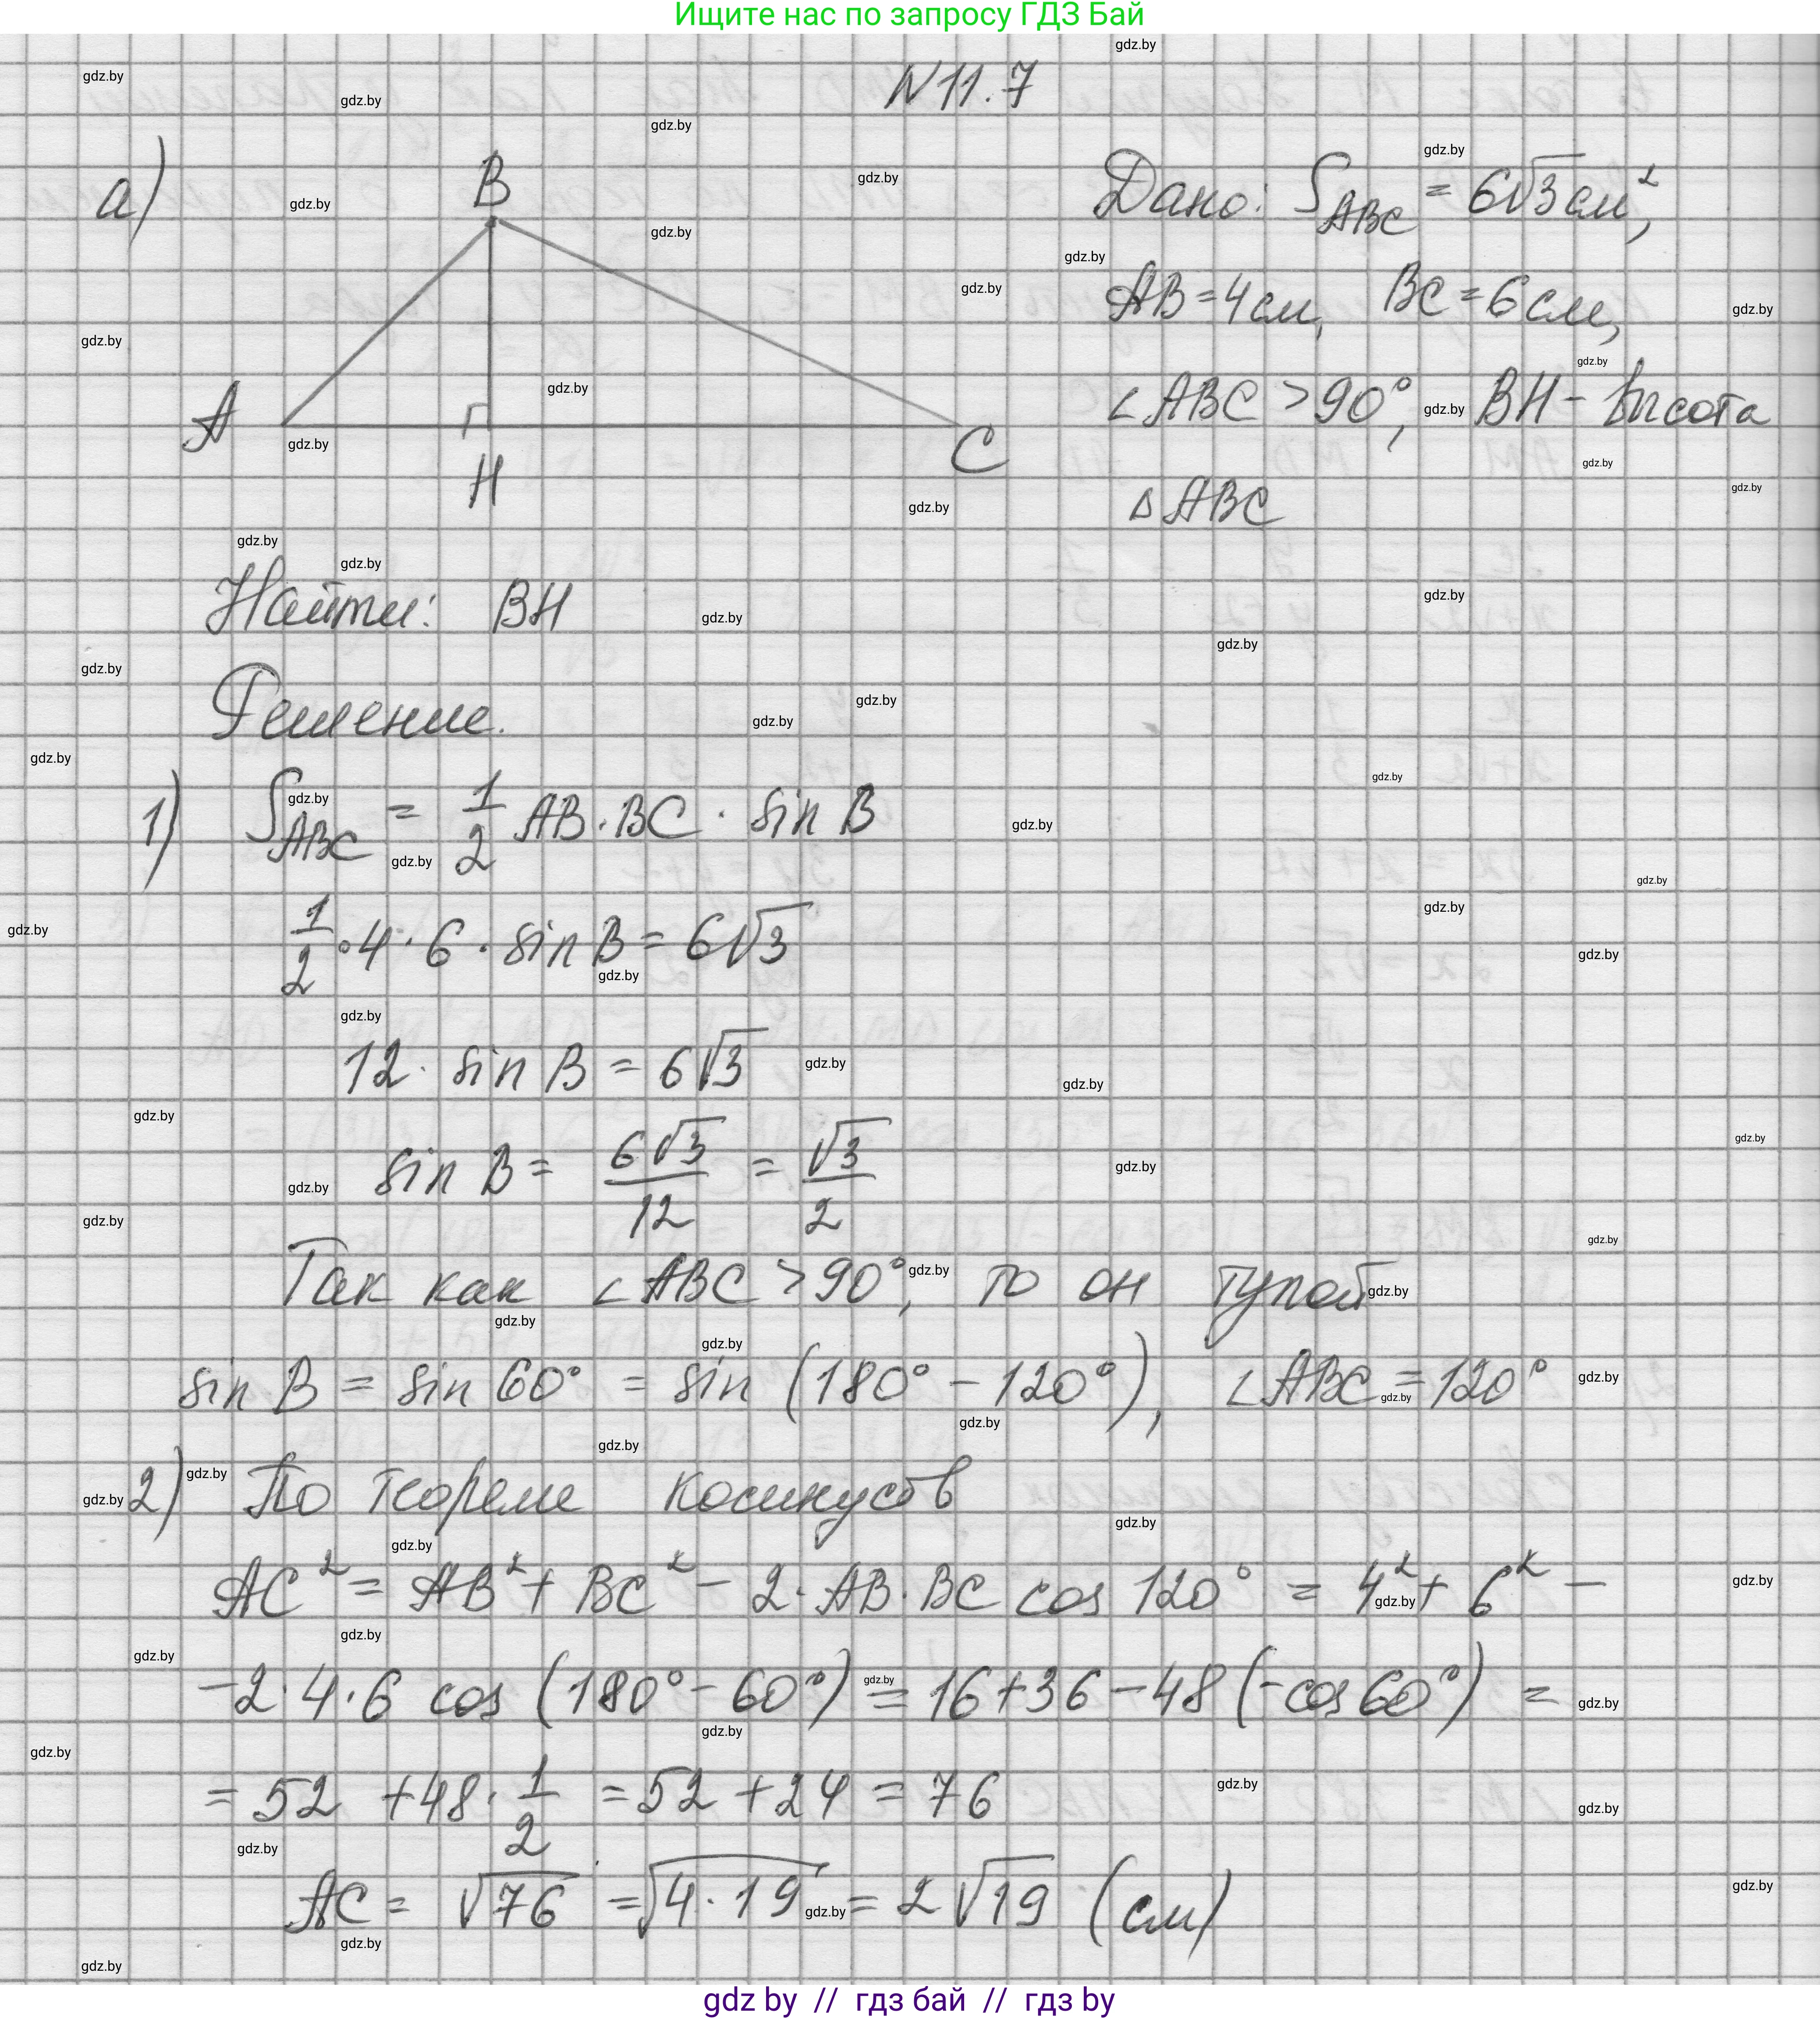 Ищите нас по запросу ГДЗ Бай
N 11.7
а)
B
A
H
C
Дано: S_ABC = 6√3 см²,
AB = 4 см, BC = 6 см,
∠ABC > 90°, BH – высота
△ABC
Найти: BH
Решение.
1) S_ABC = 1/2 AB · BC · sin B
1/2 · 4 · 6 · sin B = 6√3
12 · sin B = 6√3
sin B = 6√3/12 = √3/2
Так как ∠ABC > 90°, то он тупой
sin B = sin 60° = sin (180° – 120°), ∠ABC = 120°
2) По теореме косинусов
AC² = AB² + BC² – 2 · AB · BC cos 120° = 4² + 6² –
–2 · 4 · 6 cos (180° – 60°) = 16 + 36 – 48 (–cos 60°) =
= 52 + 48 · 1/2 = 52 + 24 = 76
AC = √76 = √4 · 19 = 2√19 (см)
gdz by // гдз бай // гдз by